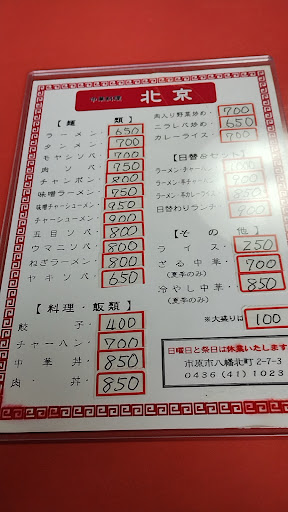 中華料理 北京
【麺類】
ラーメン・650
タンメン・700
モヤシソバ・700
肉ソバ・750
チャンポン・800
味噌ラーメン・750
味噌チャーシューメン・950
チャーシューメン・900
五目ソバ・800
ウマニソバ・800
ねぎラーメン・800
ヤキソバ・650
【料理・飯類】
餃子・400
チャーハン・700
中華丼・850
肉丼・850
肉入り野菜炒め・700
ニラレバ炒め・650
カレーライス・700
【日替&セット】
ラーメン・チャーハン
ラーメン・半チャーハン
ラーメン・半カレーライス
日替わりランチ・
【その他】
ライス・250
ざる中華・700
(夏季のみ)
冷やし中華・850
(夏季のみ)
※大盛りは 100
日曜日と祭日は休業いたします
市原市八幡北町2-7-3
0436(41)1023